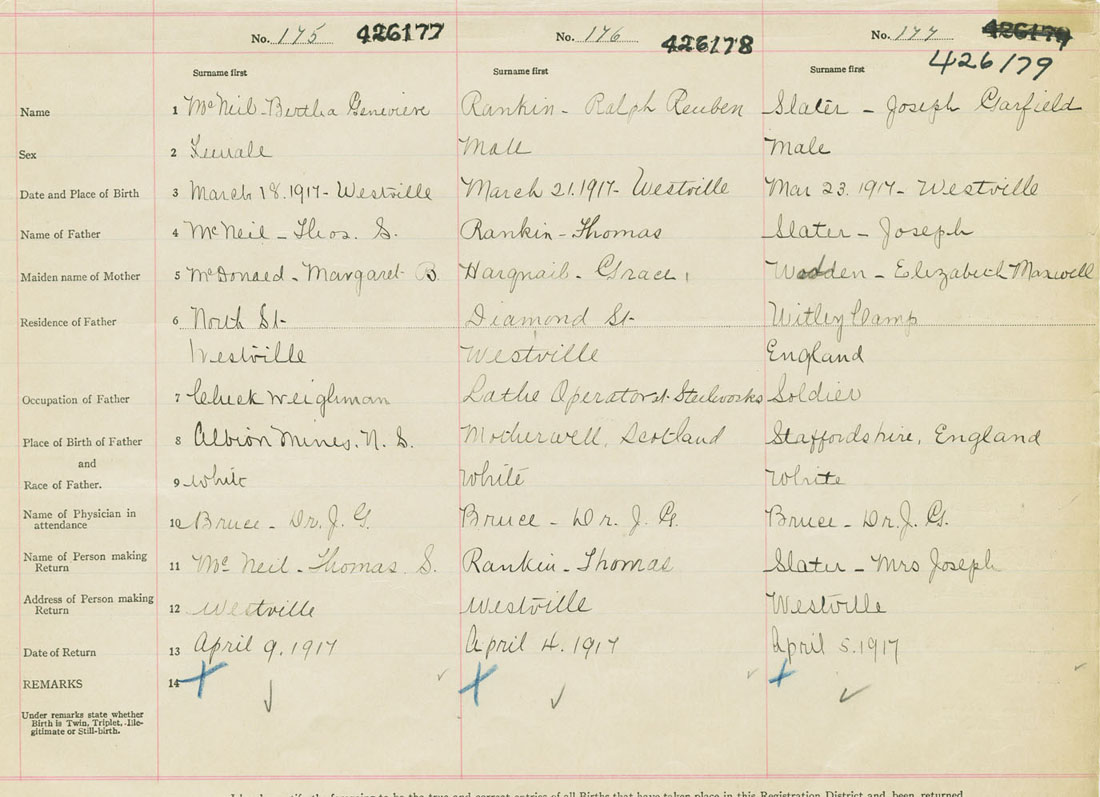 No. 175 426177 No. 176 426178 No. 177 426179
426179
Surname first Surname first Surname first
Name 1 McNeil - Bertha Genevieve Rankin - Ralph Reuben Slater - Joseph Garfield
Sex 2 Female Male Male
Date and Place of Birth 3 March 18. 1917 - Westville March 21. 1917 - Westville Mar 23. 1917 - Westville
Name of Father 4 McNeil - Thos. S. Rankin - Thomas Slater - Joseph
Maiden name of Mother 5 McDonald - Margaret B. Hargnail - Grace Wedden - Elizabeth Maxwell
Residence of Father 6 North St - Diamond St - Witley Camp
Westville Westville England
Occupation of Father 7 Check Weighman Lathe Operator at Steelworks Soldier
Place of Birth of Father 8 Albion Mines. N. S. Motherwell, Scotland Staffordshire, England
and
Race of Father. 9 White White White
Name of Physician in
attendance 10 Bruce - Dr. J. G. Bruce - Dr. J. G. Bruce - Dr. J. G.
Name of Person making
Return 11 McNeil - Thomas S. Rankin - Thomas Slater - Mrs Joseph
Address of Person making
Return 12 Westville Westville Westville
Date of Return 13 April 9. 1917 April 4. 1917 April 5. 1917
REMARKS 14
Under remarks state whether
Birth is Twin, Triplet, Ille-
gitimate or Still-birth.
the foregoing to be the true and correct entries of all Births that have taken place in this Registration District and been returned